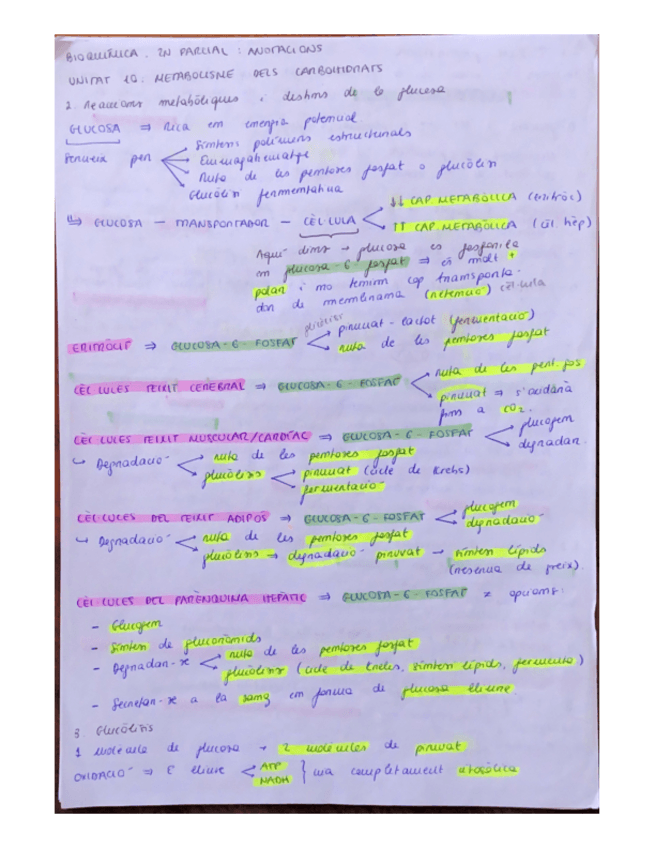 BIOQUÍMICA. 2N PARCIAL: ANOTACIONS
UNITAT 10: METABOLISME DELS CARBOHIDRATS
2. Reaccions metabòliques i destins de la glucosa
GLUCOSA ⇒ Rica en energia potencial
Serveix per
Síntesi polímers estructurals
Emmagatzematge
Ruta de les pentoses fosfat o glucòlisi
Glucòlisi fermentativa
↳ GLUCOSA — TRANSPORTADOR — CÈL·LULA
↓↓ CAP. METABÒLICA (eritròc)
↑↑ CAP. METABÒLICA (cèl. hep)
Aquí dins → glucosa es fosforila
en glucosa-6-fosfat ⇒ és molt +
polar i no tenim cap transporta-
dor de membrana (retenció) cèl·lula
ERITRÒCIT ⇒ GLUCOSA-6-FOSFAT
glucòlisi
piruvat - lactat (fermentació)
ruta de les pentoses fosfat
CÈL·LULES TEIXIT CEREBRAL ⇒ GLUCOSA-6-FOSFAT
ruta de les pent. fos
piruvat ⇒ s'oxidarà
fins a CO2.
CÈL·LULES TEIXIT MUSCULAR/CARDÍAC ⇒ GLUCOSA-6-FOSFAT
glucogen
degradar.
↳ Degradació
ruta de les pentoses fosfat
glucòlisi
piruvat (cicle de Krebs)
fermentació
CÈL·LULES DEL TEIXIT ADIPÓS ⇒ GLUCOSA-6-FOSFAT
glucogen
degradació
↳ Degradació
ruta de les pentoses fosfat
glucòlisi → degradació piruvat → síntesi lípids
(reserva de greix).
CÈL·LULES DEL PARÈNQUIMA HEPÀTIC ⇒ GLUCOSA-6-FOSFAT x opcions:
- Glucogen
- Síntesi de glucorònids
- Degradar-se
ruta de les pentoses fosfat
glucòlisi (cicle de Krebs, síntesi lípids, fermentació)
- Secretar-se a la sang en forma de glucosa lliure
3. Glucòlisis
1 molècula de glucosa → 2 molècules de piruvat
OXIDACIÓ ⇒ E lliure
ATP
NADH
} via completament citosòlica